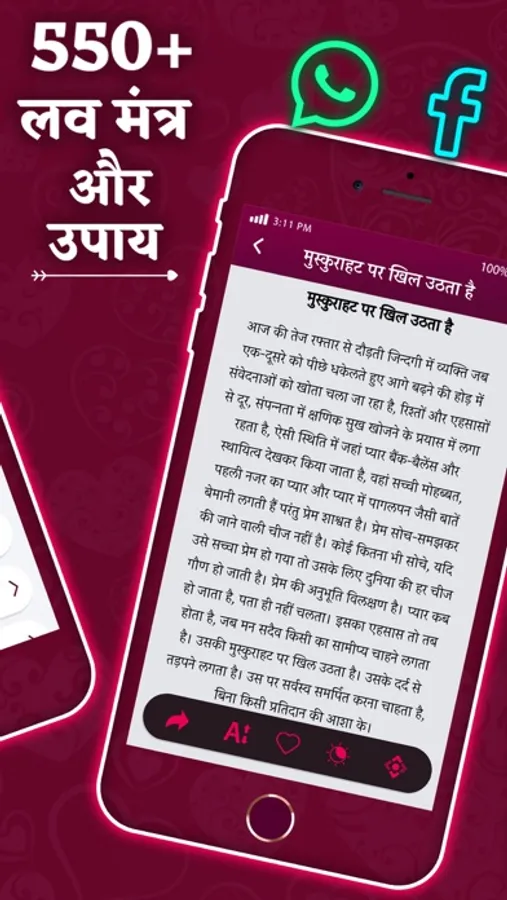 550+
लव मंत्र
और
उपाय
3:11 PM
100%
मुस्कुराहट पर खिल उठता है
मुस्कुराहट पर खिल उठता है
आज की तेज रफ्तार से दौड़ती जिन्दगी में व्यक्ति जब
एक-दूसरे को पीछे धकेलते हुए आगे बढ़ने की होड़ में
संवेदनाओं को खोता चला जा रहा है, रिश्तों और एहसासों
से दूर, संपन्नता में क्षणिक सुख खोजने के प्रयास में लगा
रहता है, ऐसी स्थिति में जहां प्यार बैंक-बैलेंस और
स्थायित्व देखकर किया जाता है, वहां सच्ची मोहब्बत,
पहली नजर का प्यार और प्यार में पागलपन जैसी बातें
बेमानी लगती हैं परंतु प्रेम शाश्वत है। प्रेम सोच-समझकर
की जाने वाली चीज नहीं है। कोई कितना भी सोचे, यदि
उसे सच्चा प्रेम हो गया तो उसके लिए दुनिया की हर चीज
गौण हो जाती है। प्रेम की अनुभूति विलक्षण है। प्यार कब
हो जाता है, पता ही नहीं चलता। इसका एहसास तो तब
होता है, जब मन सदैव किसी का सामीप्य चाहने लगता
है। उसकी मुस्कुराहट पर खिल उठता है। उसके दर्द से
तड़पने लगता है। उस पर सर्वस्व समर्पित करना चाहता है,
बिना किसी प्रतिदान की आशा के।
A